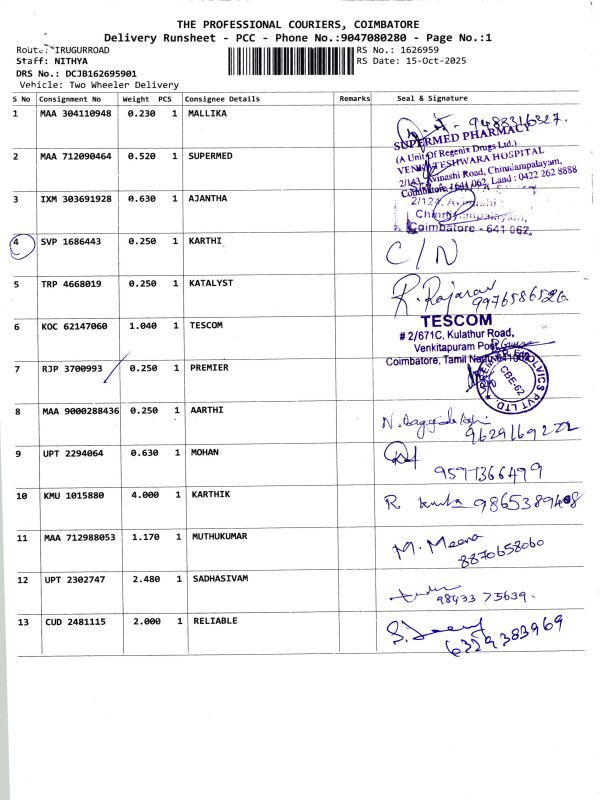 THE PROFESSIONAL COURIERS, COIMBATORE
Delivery Runsheet - PCC - Phone No.:9047080280 - Page No.:1
Route: IRUGURROAD
RS No.: 1626959
Staff: NITHYA
RS Date: 15-Oct-2025
DRS No.: DCJB162695901
Vehicle: Two Wheeler Delivery
S No Consignment No Weight PCS Consignee Details Remarks Seal & Signature
1 MAA 304110948 0.230 1 MALLIKA 9488316327.
2 MAA 712090464 0.520 1 SUPERMED
SUPERMED PHARMACY
(A Unit Of Regenix Drugs Ltd.)
VENKATESHWARA HOSPITAL
2/143, Avinashi Road, Chinniampalayam,
Coimbatore, 1641 062, Land : 0422 262 8888
3 IXM 303691928 0.630 1 AJANTHA
2/124, Avinashi
Chinniyampalayam,
Coimbatore - 641 062.
4 SVP 1686443 0.250 1 KARTHI C/N
5 TRP 4668019 0.250 1 KATALYST R. Rajaran
9976586526
6 KOC 62147060 1.040 1 TESCOM
TESCOM
# 2/671C, Kulathur Road,
Venkitapuram Post,
Coimbatore, Tamil Nadu-641062
7 RJP 3700993 0.250 1 PREMIER
CBE-62
8 MAA 9000288436 0.250 1 AARTHI
9629169222
9 UPT 2294064 0.630 1 MOHAN
9597366499
10 KMU 1015880 4.000 1 KARTHIK R 9865389408
11 MAA 712988053 1.170 1 MUTHUKUMAR M. Meena
8870658060
12 UPT 2302747 2.480 1 SADHASIVAM
98433 75639.
13 CUD 2481115 2.000 1 RELIABLE
6329383969